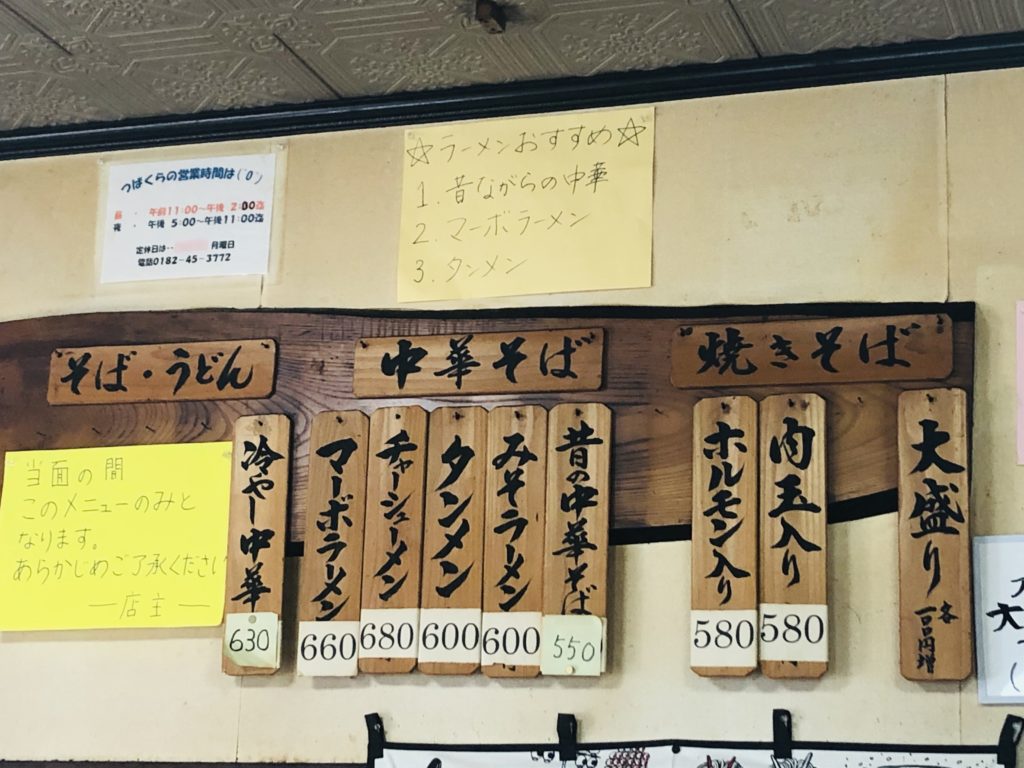 つばくらの営業時間は('0')
昼・ 午前11:00～午後 2:00迄
夜・ 午後 5:00～午後11:00迄
定休日は・・ 月曜日
電話0182-45-3772
☆ラーメンおすすめ☆
1. 昔ながらの中華
2. マーボラーメン
3. タンメン
そば・うどん
中華そば
焼きそば
当面の間
このメニューのみと
なります。
あらかじめご了承ください
―店主―
冷やし中華
630
マーボラーメン
660
チャーシューメン
680
タンメン
600
みそラーメン
600
昔の中華そば
550
ホルモン入り
580
肉玉入り
580
大盛り
各一〇〇円増
大